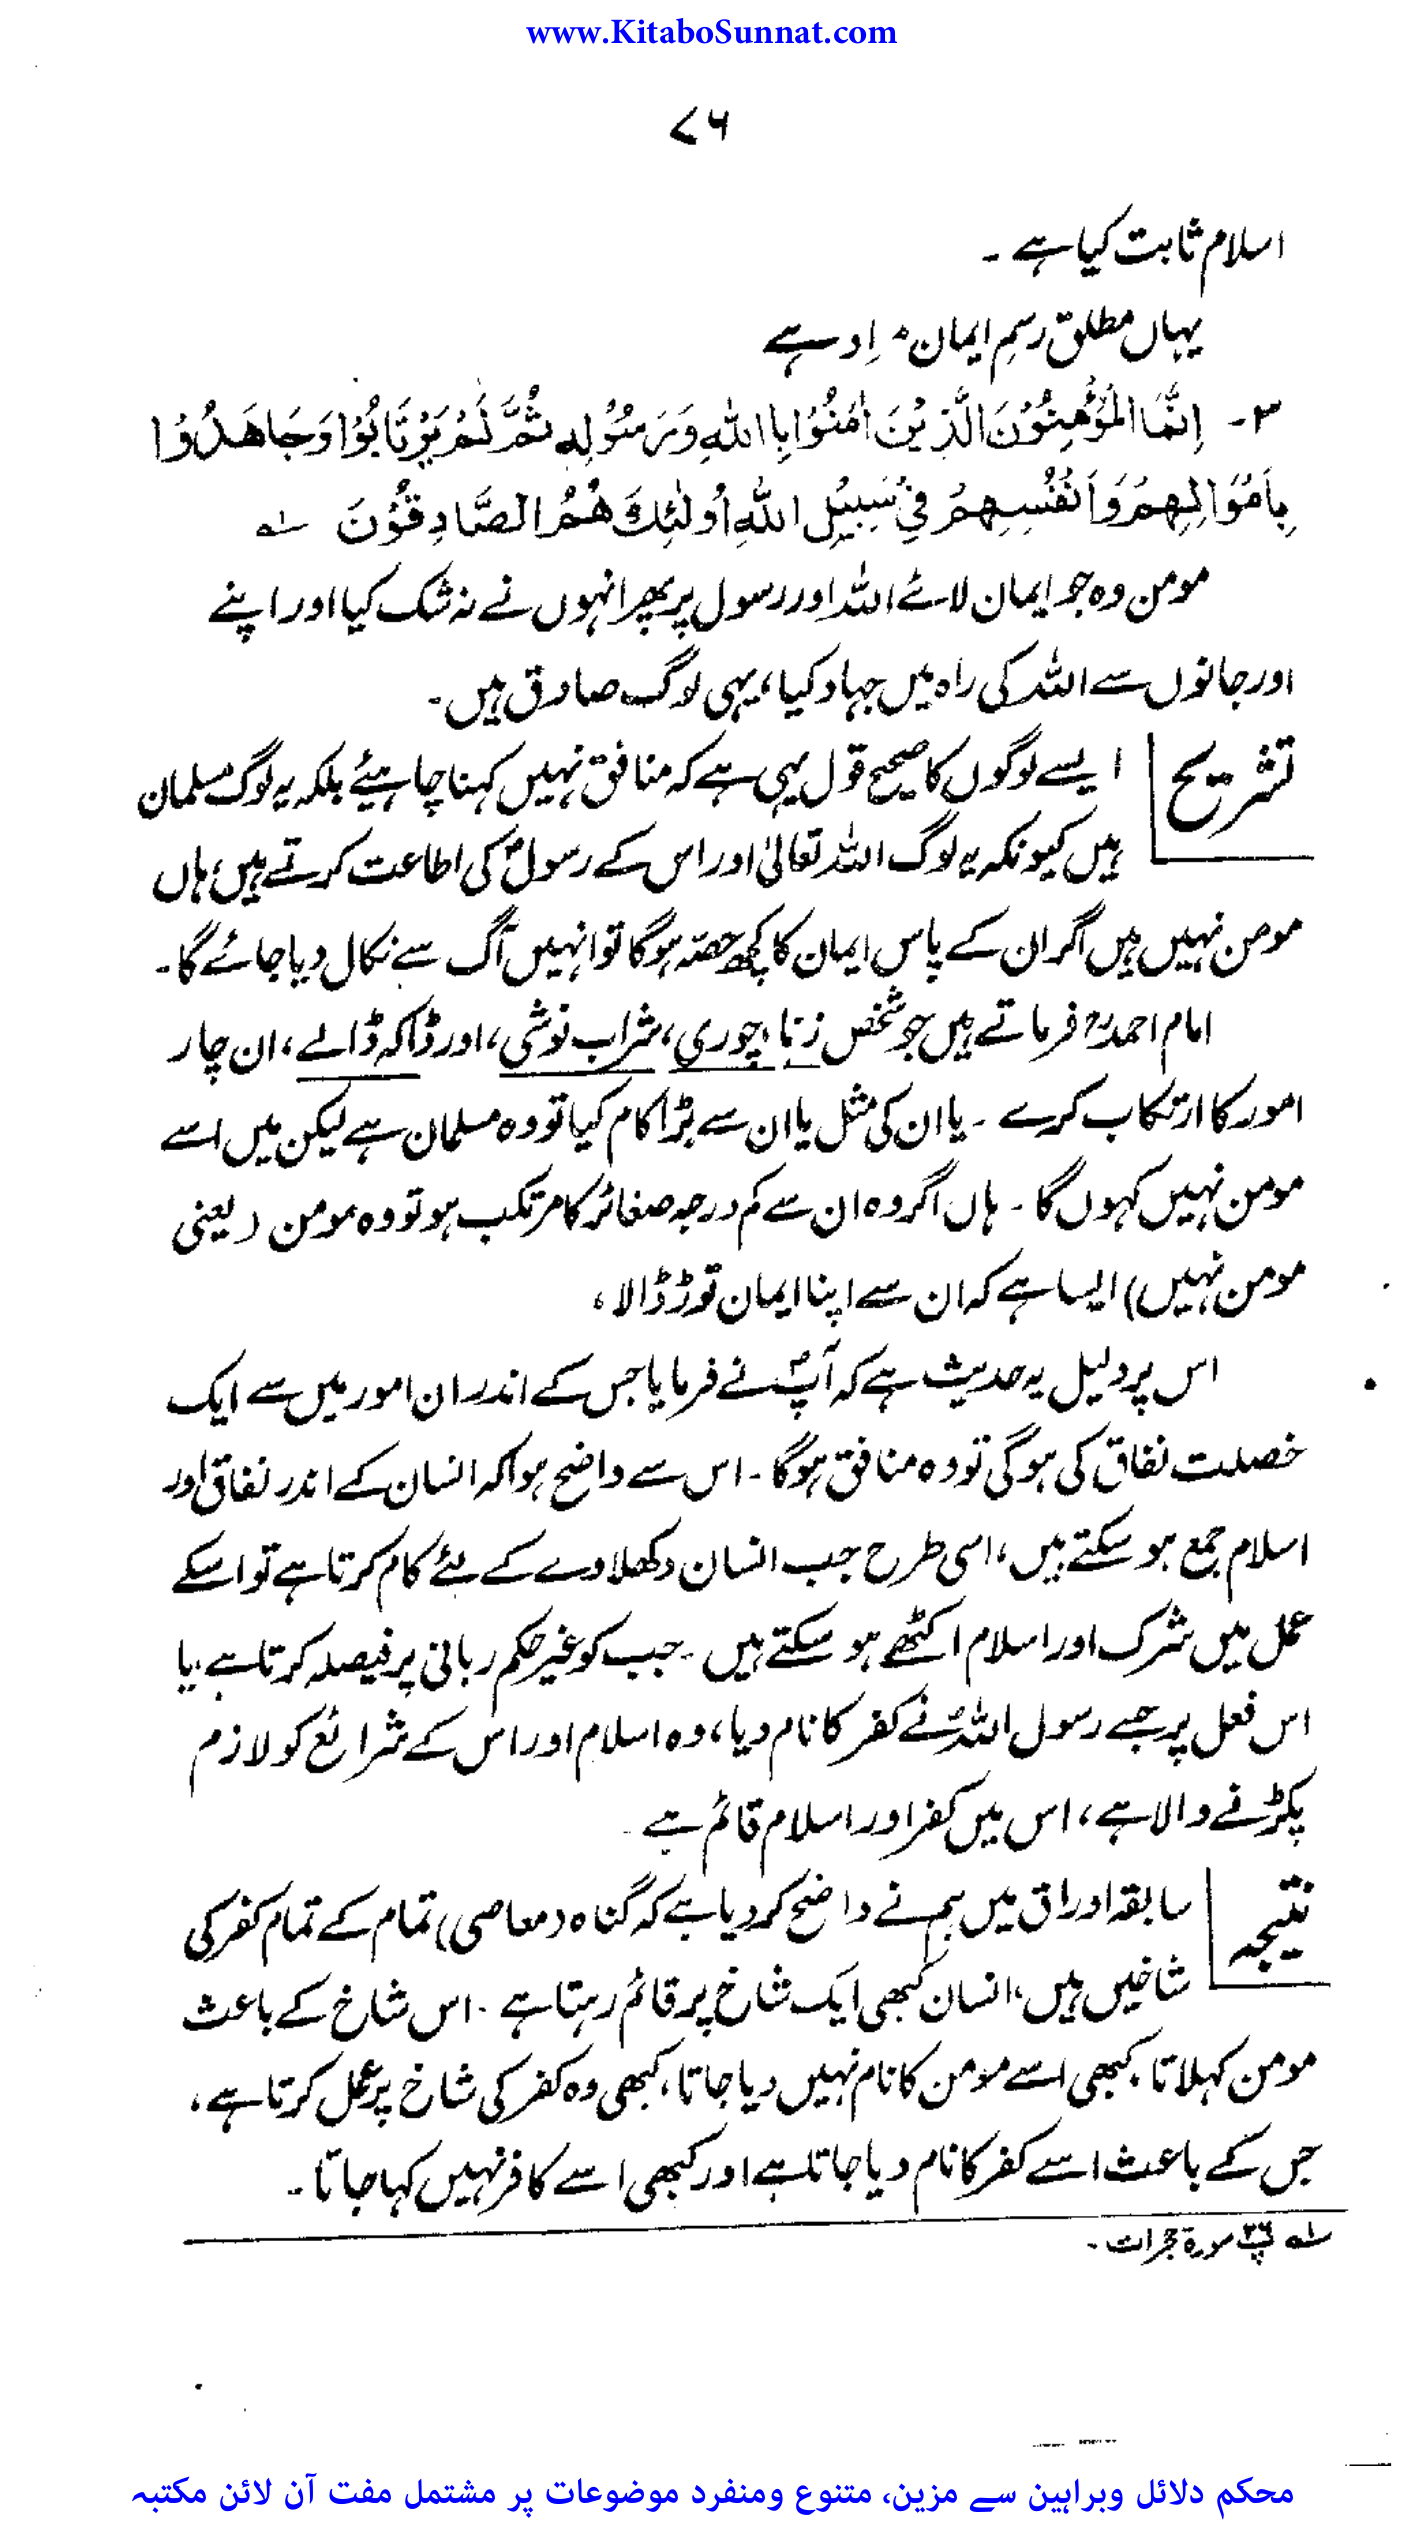 www.KitaboSunnat.com
۷۶
اسلام ثابت کیا ہے ۔
یہاں مطلق رسمِ ایمان اِد ہے
۳- اِنَّمَا الْمُؤْمِنُوْنَ الَّذِیْنَ اٰمَنُوْا بِاللّٰهِ وَرَسُوْلِهٖ ثُمَّ لَمْ یَرْتَابُوْا وَجَاهَدُوْا
بِاَمْوَالِهِمْ وَاَنْفُسِهِمْ فِیْ سَبِیْلِ اللّٰهِ اُولٰئِكَ هُمُ الصَّادِقُوْنَ ؎۱
مومن وہ جو ایمان لائے اللہ اور رسول پر پھر انہوں نے نہ شک کیا اور اپنے
اور جانوں سے اللہ کی راہ میں جہاد کیا، یہی لوگ صادق ہیں۔
تشریح ایسے لوگوں کا صحیح قول یہی ہے کہ منافق نہیں کہنا چاہیئے بلکہ یہ لوگ مسلمان
ہیں کیونکہ یہ لوگ اللہ تعالیٰ اور اس کے رسولؐ کی اطاعت کرتے ہیں، ہاں
مومن نہیں ہیں اگر ان کے پاس ایمان کا کچھ حصّہ ہوگا تو انہیں آگ سے نکال دیا جائے گا۔
امام احمدؒ فرماتے ہیں جو شخص زنا، چوری، شراب نوشی، اور ڈاکہ ڈالے، ان چار
امور کا ارتکاب کرے ۔ یا ان کی مثل یا ان سے بڑا کام کیا تو وہ مسلمان ہے لیکن میں اسے
مومن نہیں کہوں گا ۔ ہاں اگر وہ ان سے کم درجہ صغائر کا مرتکب ہو تو وہ مومن (یعنی
مومن نہیں) ایسا ہے کہ ان سے اپنا ایمان توڑ ڈالا،
اس پر دلیل یہ حدیث ہے کہ آپؐ نے فرمایا جس کے اندر ان امور میں سے ایک
خصلت نفاق کی ہوگی تو وہ منافق ہوگا ۔ اس سے واضح ہوا کہ انسان کے اندر نفاق اور
اسلام جمع ہو سکتے ہیں، اسی طرح جب انسان دکھلاوے کے لئے کام کرتا ہے تو اسکے
عمل میں شرک اور اسلام اکٹھے ہو سکتے ہیں ۔ جب کو غیر حکم ربانی پر فیصلہ کرتا ہے، یا
اس فعل پر جسے رسول اللہؐ نے کفر کا نام دیا، وہ اسلام اور اس کے شرائع کو لازم
پکڑنے والا ہے، اس میں کفر اور اسلام قائم ہے
نتیجہ سابقہ اوراق میں ہم نے واضح کردیا ہے کہ گناہ (معاصی) تمام کے تمام کفر کی
شاخیں ہیں، انسان کبھی ایک شاخ پر قائم رہتا ہے ۔ اس شاخ کے باعث
مومن کہلاتا، کبھی اسے مومن کا نام نہیں دیا جاتا، کبھی وہ کفر کی شاخ پر عمل کرتا ہے،
جس کے باعث اسے کفر کا نام دیا جاتا ہے اور کبھی اسے کافر نہیں کہا جاتا ۔
؎۱ پ ۲۶ سورۃ حجرات ۔
محکم دلائل وبراہین سے مزین، متنوع ومنفرد موضوعات پر مشتمل مفت آن لائن مکتبہ